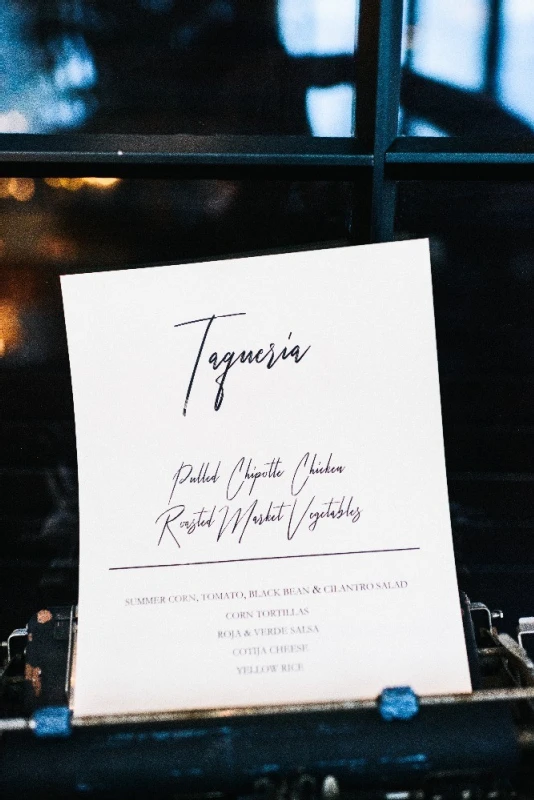 Taqueria
Pulled Chipotle Chicken
Roasted Market Vegetables
SUMMER CORN, TOMATO, BLACK BEAN & CILANTRO SALAD
CORN TORTILLAS
ROJA & VERDE SALSA
COTIJA CHEESE
YELLOW RICE